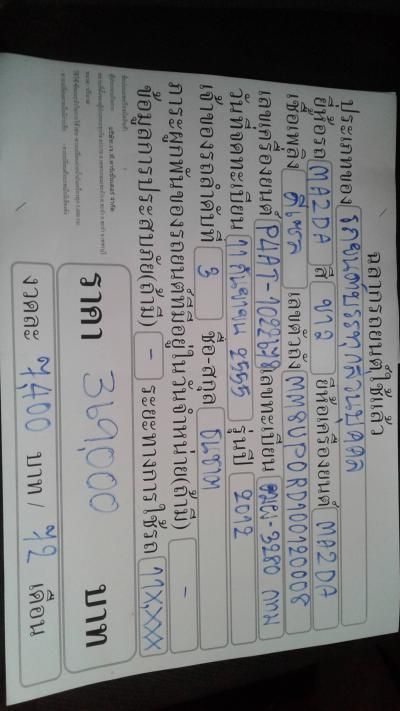 ฉลากรถยนต์ใช้แล้ว
ประเภทของ รถยนต์บรรทุกส่วนบุคคล
ยี่ห้อรถ MAZDA สี ขาว ยี่ห้อเครื่องยนต์ MAZDA
เชื้อเพลิง ดีเซล เลขตัวถัง MM8UP0RD100120008
เลขเครื่องยนต์ P4AT-1092678 เลขทะเบียน 3280 กทม
วันที่จดทะเบียน 11 กันยายน 2555 รุ่นปี 2012
เจ้าของรถลำดับที่ 3 ชื่อ-สกุล
ภาระผูกพันของรถยนต์ที่มีอยู่ในวันจำหน่าย(ถ้ามี) -
ข้อมูลการประสบภัย(ถ้ามี) - ระยะทางการใช้รถ 11X,XXX
ราคา 369,000 บาท
งวดละ 7,400 บาท / 72 เดือน